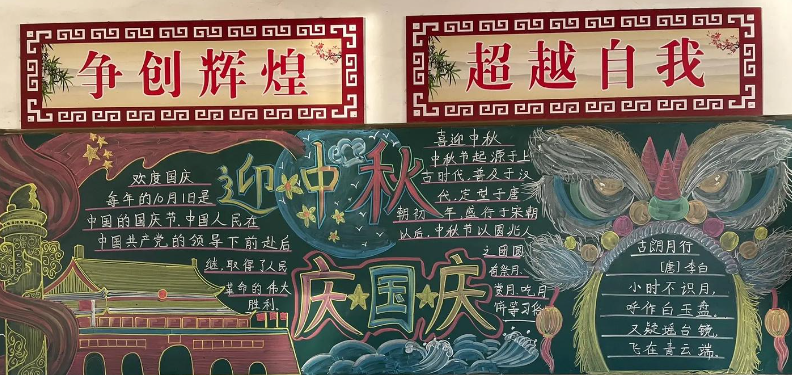 争创辉煌
超越自我
迎中秋
庆国庆
欢度国庆
每年的10月1日是
中国的国庆节,中国人民在
中国共产党的领导下前赴后
继,取得了人民
革命的伟大
胜利。
喜迎中秋
中秋节起源于上
古时代,普及于汉
代,定型于唐
朝初年,盛行于宋朝
以后,中秋节以圆兆人
之团圆
有祭月、
赏月、吃月
饼等习俗
古朗月行
[唐]李白
小时不识月,
呼作白玉盘。
又疑瑶台镜,
飞在青云端。